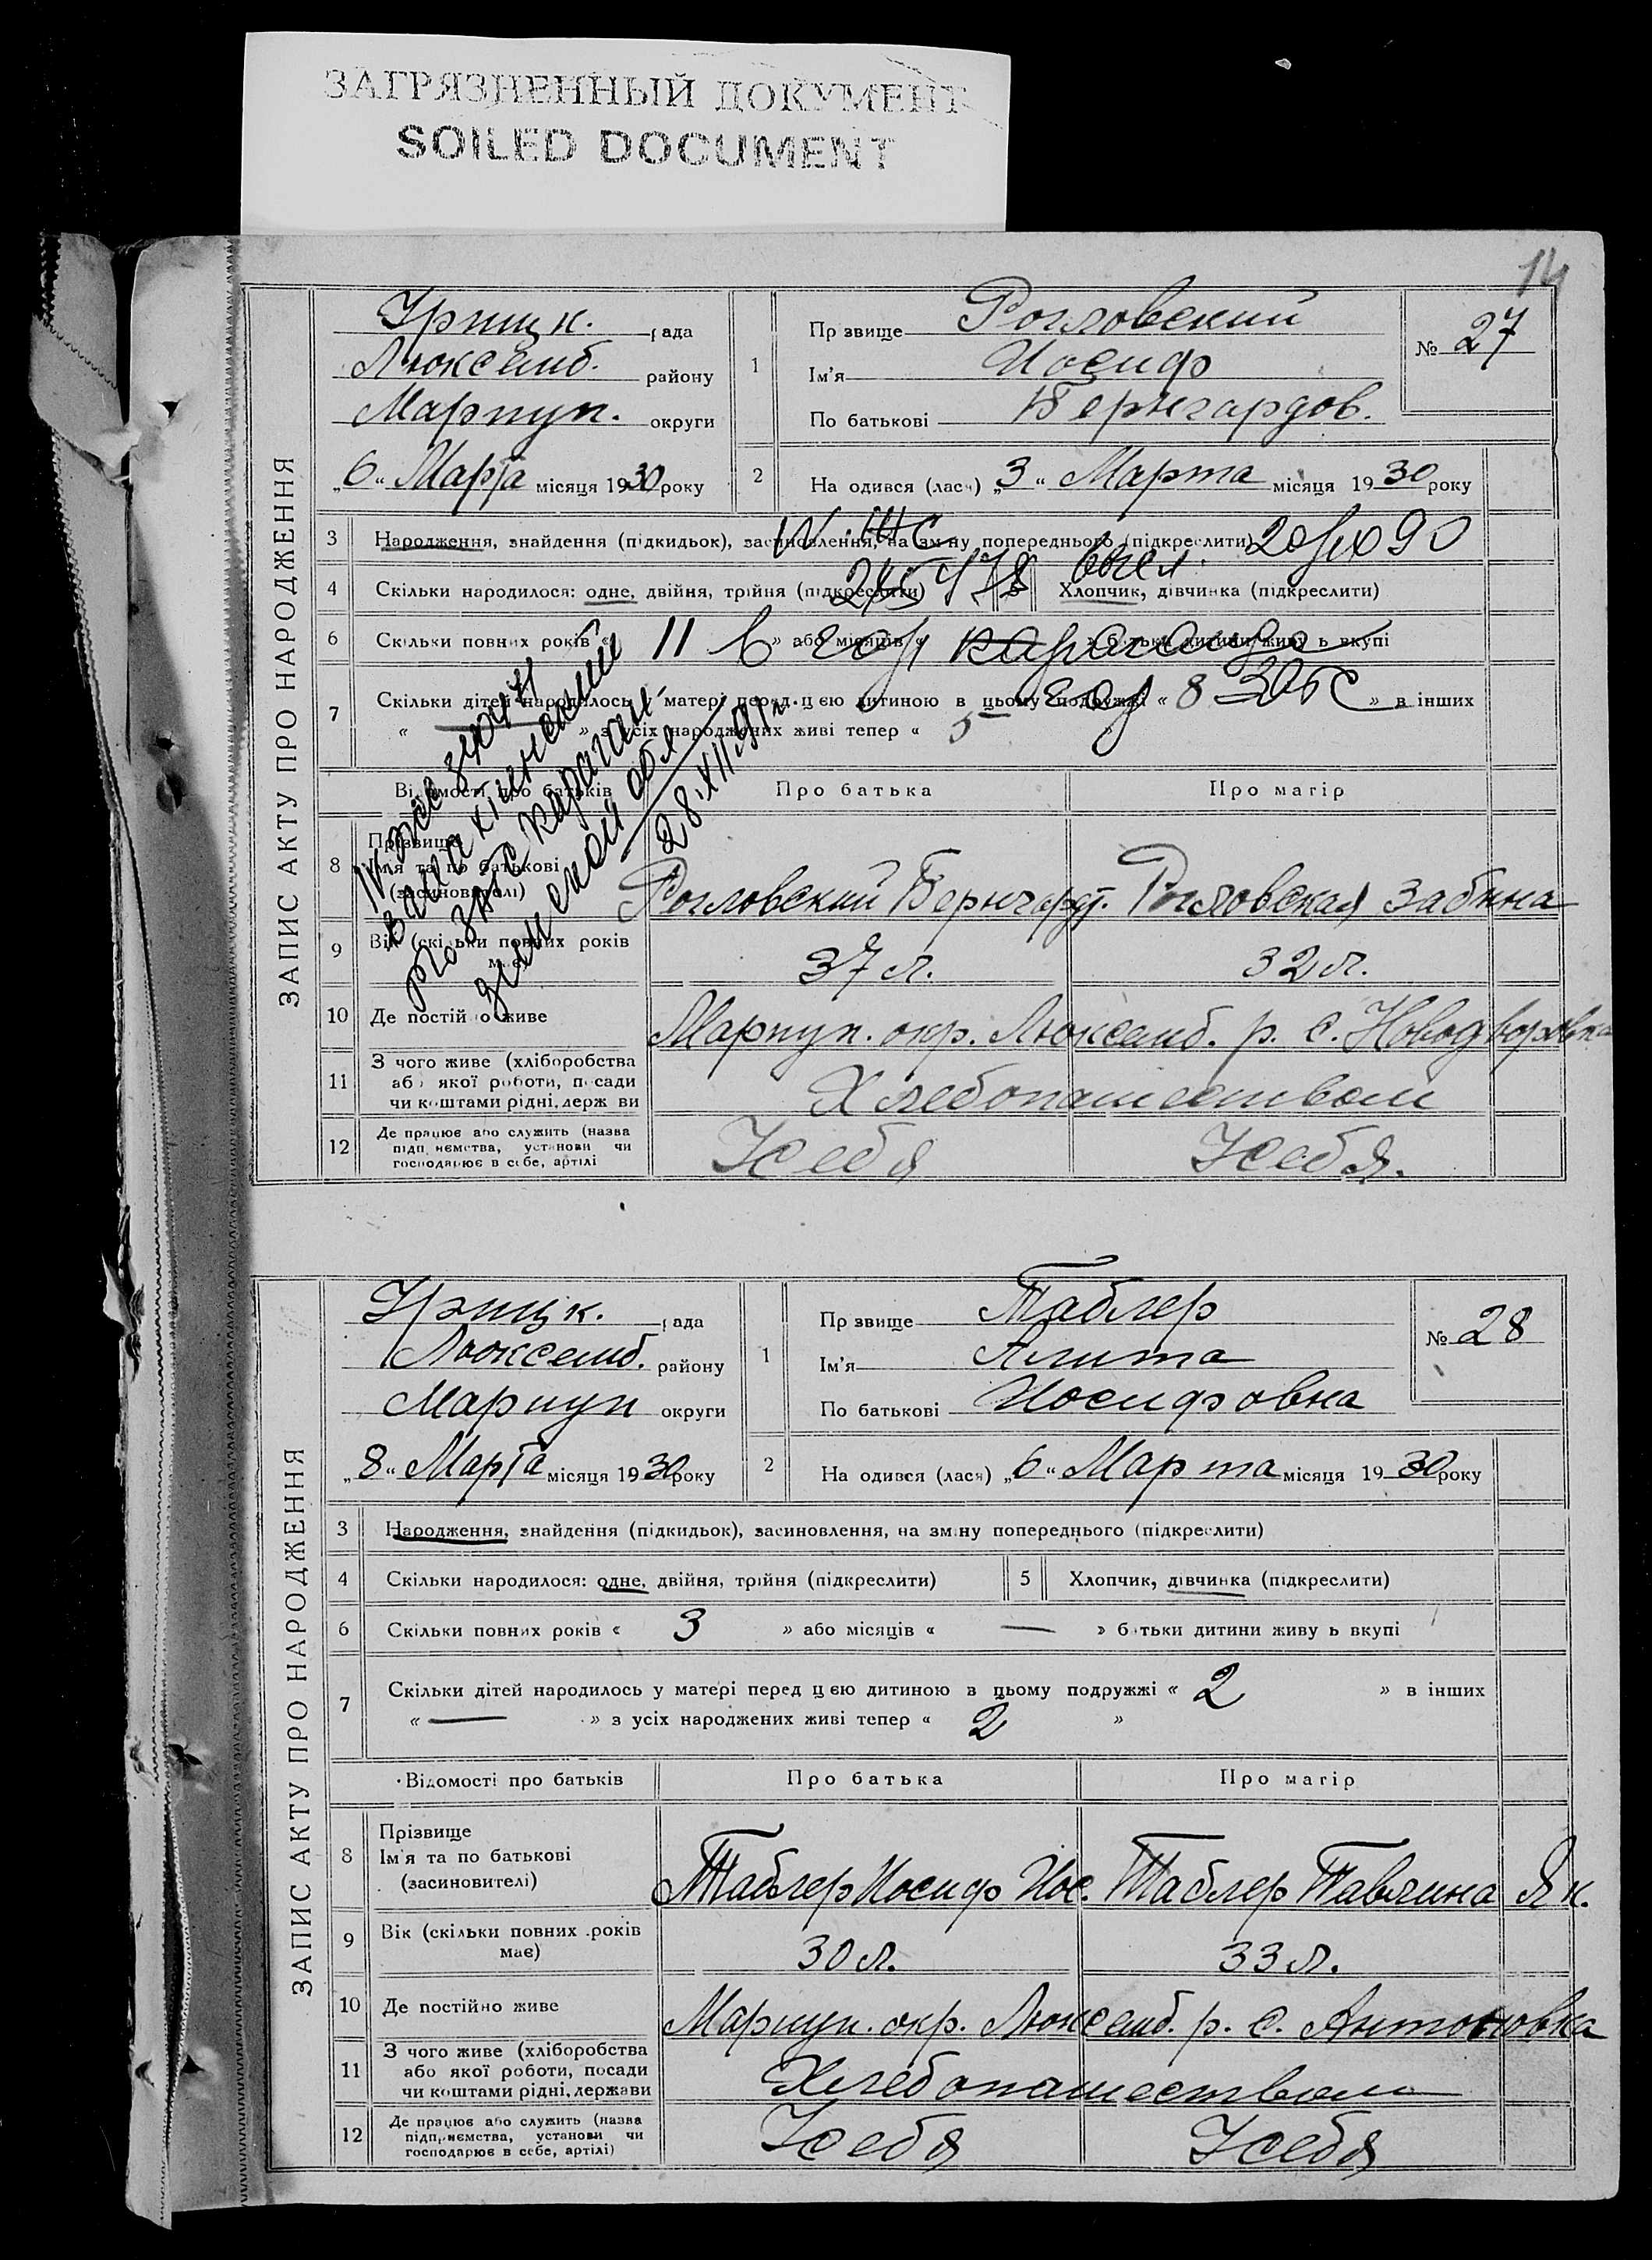 ЗАГРЯЗНЕННЫЙ ДОКУМЕНТ
SOILED DOCUMENT
14
ЗАПИС АКТУ ПРО НАРОДЖЕННЯ
Урицк. рада
Люксемб. району
Мариуп. округи
„6“ Марта місяця 1930 року
1
Прізвище Рогловский
Ім'я Иосиф
По батькові Бернгардов.
№ 27
2
На одився (лася) „3“ Марта місяця 1930 року
3 Народження, знайдення (підкидьок), засиновлення, на зміну попереднього (підкреслити)
4 Скільки народилося: одне, двійня, трійня (підкреслити)
Хлопчик, дівчинка (підкреслити)
6 Скільки повних років « 11 » або місяців « » батьки дитини живуть вкупі
7 Скільки дітей народилось у матері перед цією дитиною в цьому подружжі « 8 » в інших
« » з усіх народжених живі тепер « 5
28.XII.91 г.
Відомості про батьків Про батька Про матір
8 Прізвище
Ім'я та по батькові
(засиновителі)
Рогловский Бернгард. Рогловская Забина
9 Вік (скільки повних років має) 37 л. 32 л.
10 Де постійно живе Мариуп. окр. Люксемб. р. с. Новодворовка
11 З чого живе (хліборобства
або якої роботи, посади
чи коштами рідні, держави
Хлебопашеством
12 Де працює або служить (назва
підприємства, установи чи
господарює в себе, артілі
У себя У себя.
ЗАПИС АКТУ ПРО НАРОДЖЕННЯ
Урицк. рада
Люксемб. району
Мариуп округи
„8“ Марта місяця 1930 року
1
Прізвище Таблер
Ім'я Аглита
По батькові Иосифовна
№ 28
2
На одився (лася) „6“ Марта місяця 1930 року
3 Народження, знайдення (підкидьок), засиновлення, на зміну попереднього (підкреслити)
4 Скільки народилося: одне, двійня, трійня (підкреслити) 5 Хлопчик, дівчинка (підкреслити)
6 Скільки повних років « 3 » або місяців « — » батьки дитини живуть вкупі
7 Скільки дітей народилось у матері перед цією дитиною в цьому подружжі « 2 » в інших
« — » з усіх народжених живі тепер « 2 »
Відомості про батьків Про батька Про матір
8 Прізвище
Ім'я та по батькові
(засиновителі)
Таблер Иосиф Иос. Таблер Павлина Як.
9 Вік (скільки повних років має) 30 л. 33 л.
10 Де постійно живе Мариуп. окр. Люксемб. р. с. Антоновка
11 З чого живе (хліборобства
або якої роботи, посади
чи коштами рідні, держави
Хлебопашеством
12 Де працює або служить (назва
підприємства, установи чи
господарює в себе, артілі)
У себя У себя